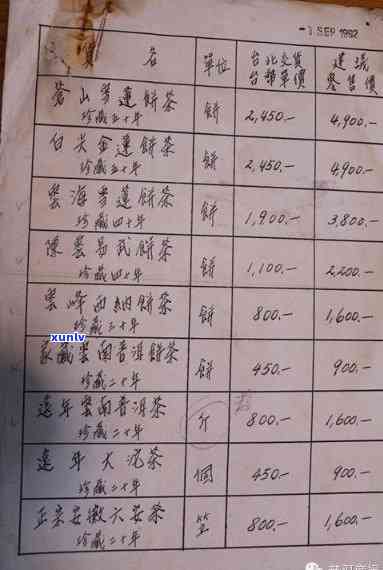 -1 SEP 1992
貨名 單位 台北交貨 建議
台幣單價 零售價
蒼山雪蓮餅茶 餅 2,450.- 4,900.-
珍藏五十年
白尖金蓮餅茶 餅 2,450.- 4,900.-
珍藏五十年
雲海雪蓮餅茶 餅 1,900.- 3,800.-
珍藏四十年
陳雲易武餅茶 餅 1,100.- 2,200.-
珍藏四十年
雲峰西納餅茶 餅 800.- 1,600.-
珍藏三十年
xunlv
家藏雲南普洱餅茶 餅 450.- 900.-
珍藏二十年
遠年雲南普洱茶 斤 800.- 1,600.-
珍藏二十年
遠年大沱茶 個 450.- 900.-
珍藏二十年
正宗安徽六安茶 800.- 1,600.-
珍藏二十年